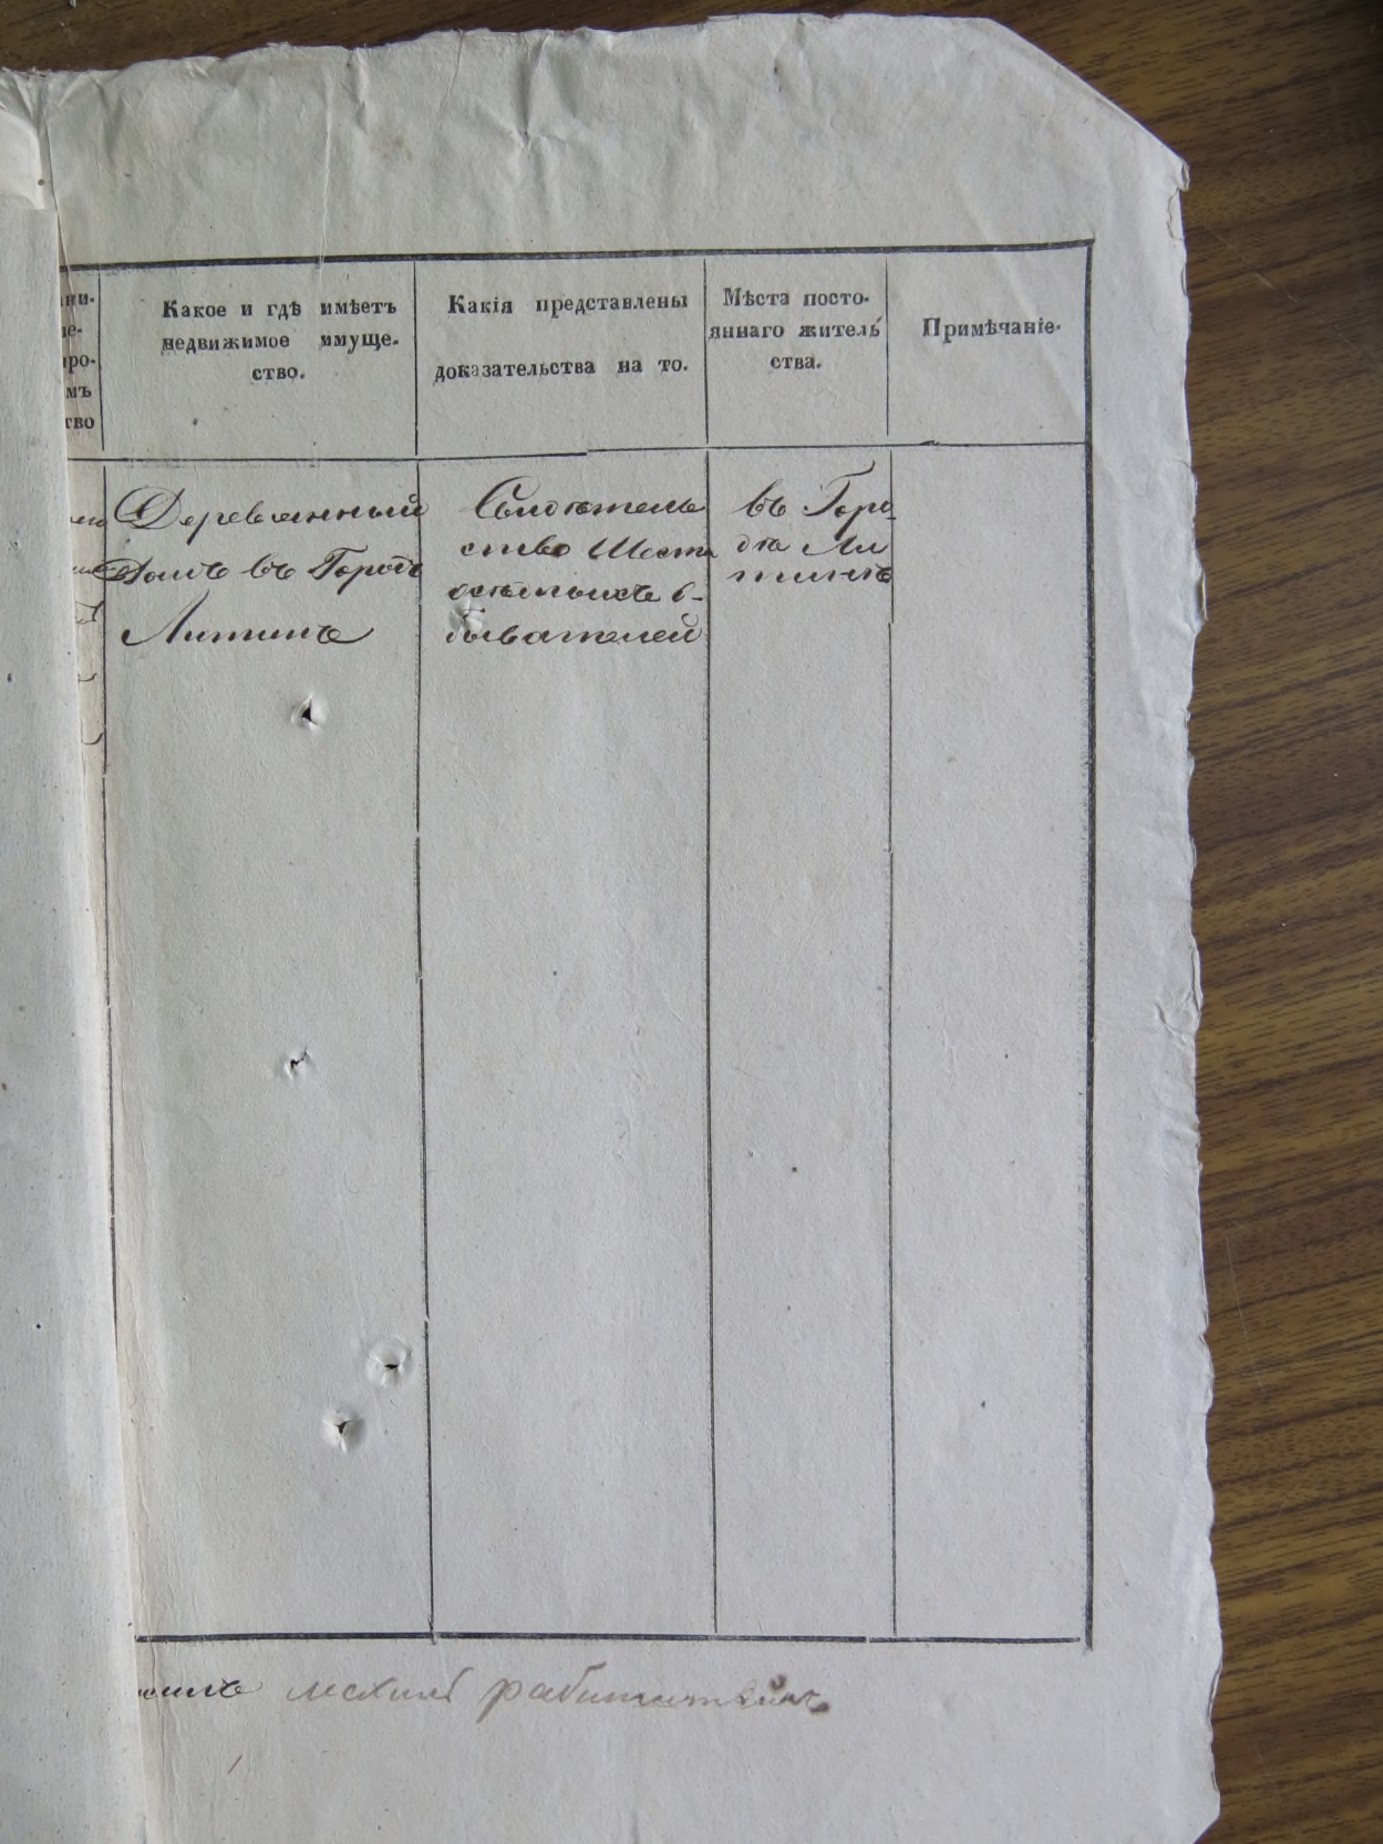 ни-
че-
про-
мъ
тво
Какое и гдѣ имѣетъ
недвижимое имуще-
ство.
Какія представлены
доказательства на то.
Мѣста посто-
яннаго житель
ства.
Примѣчаніе.
Деревянный
Домъ въ Городѣ
Литинѣ
Свидѣтель
ство Шести
осѣдлыхъ о-
бывателей
въ Горо
дѣ Ли
тинѣ